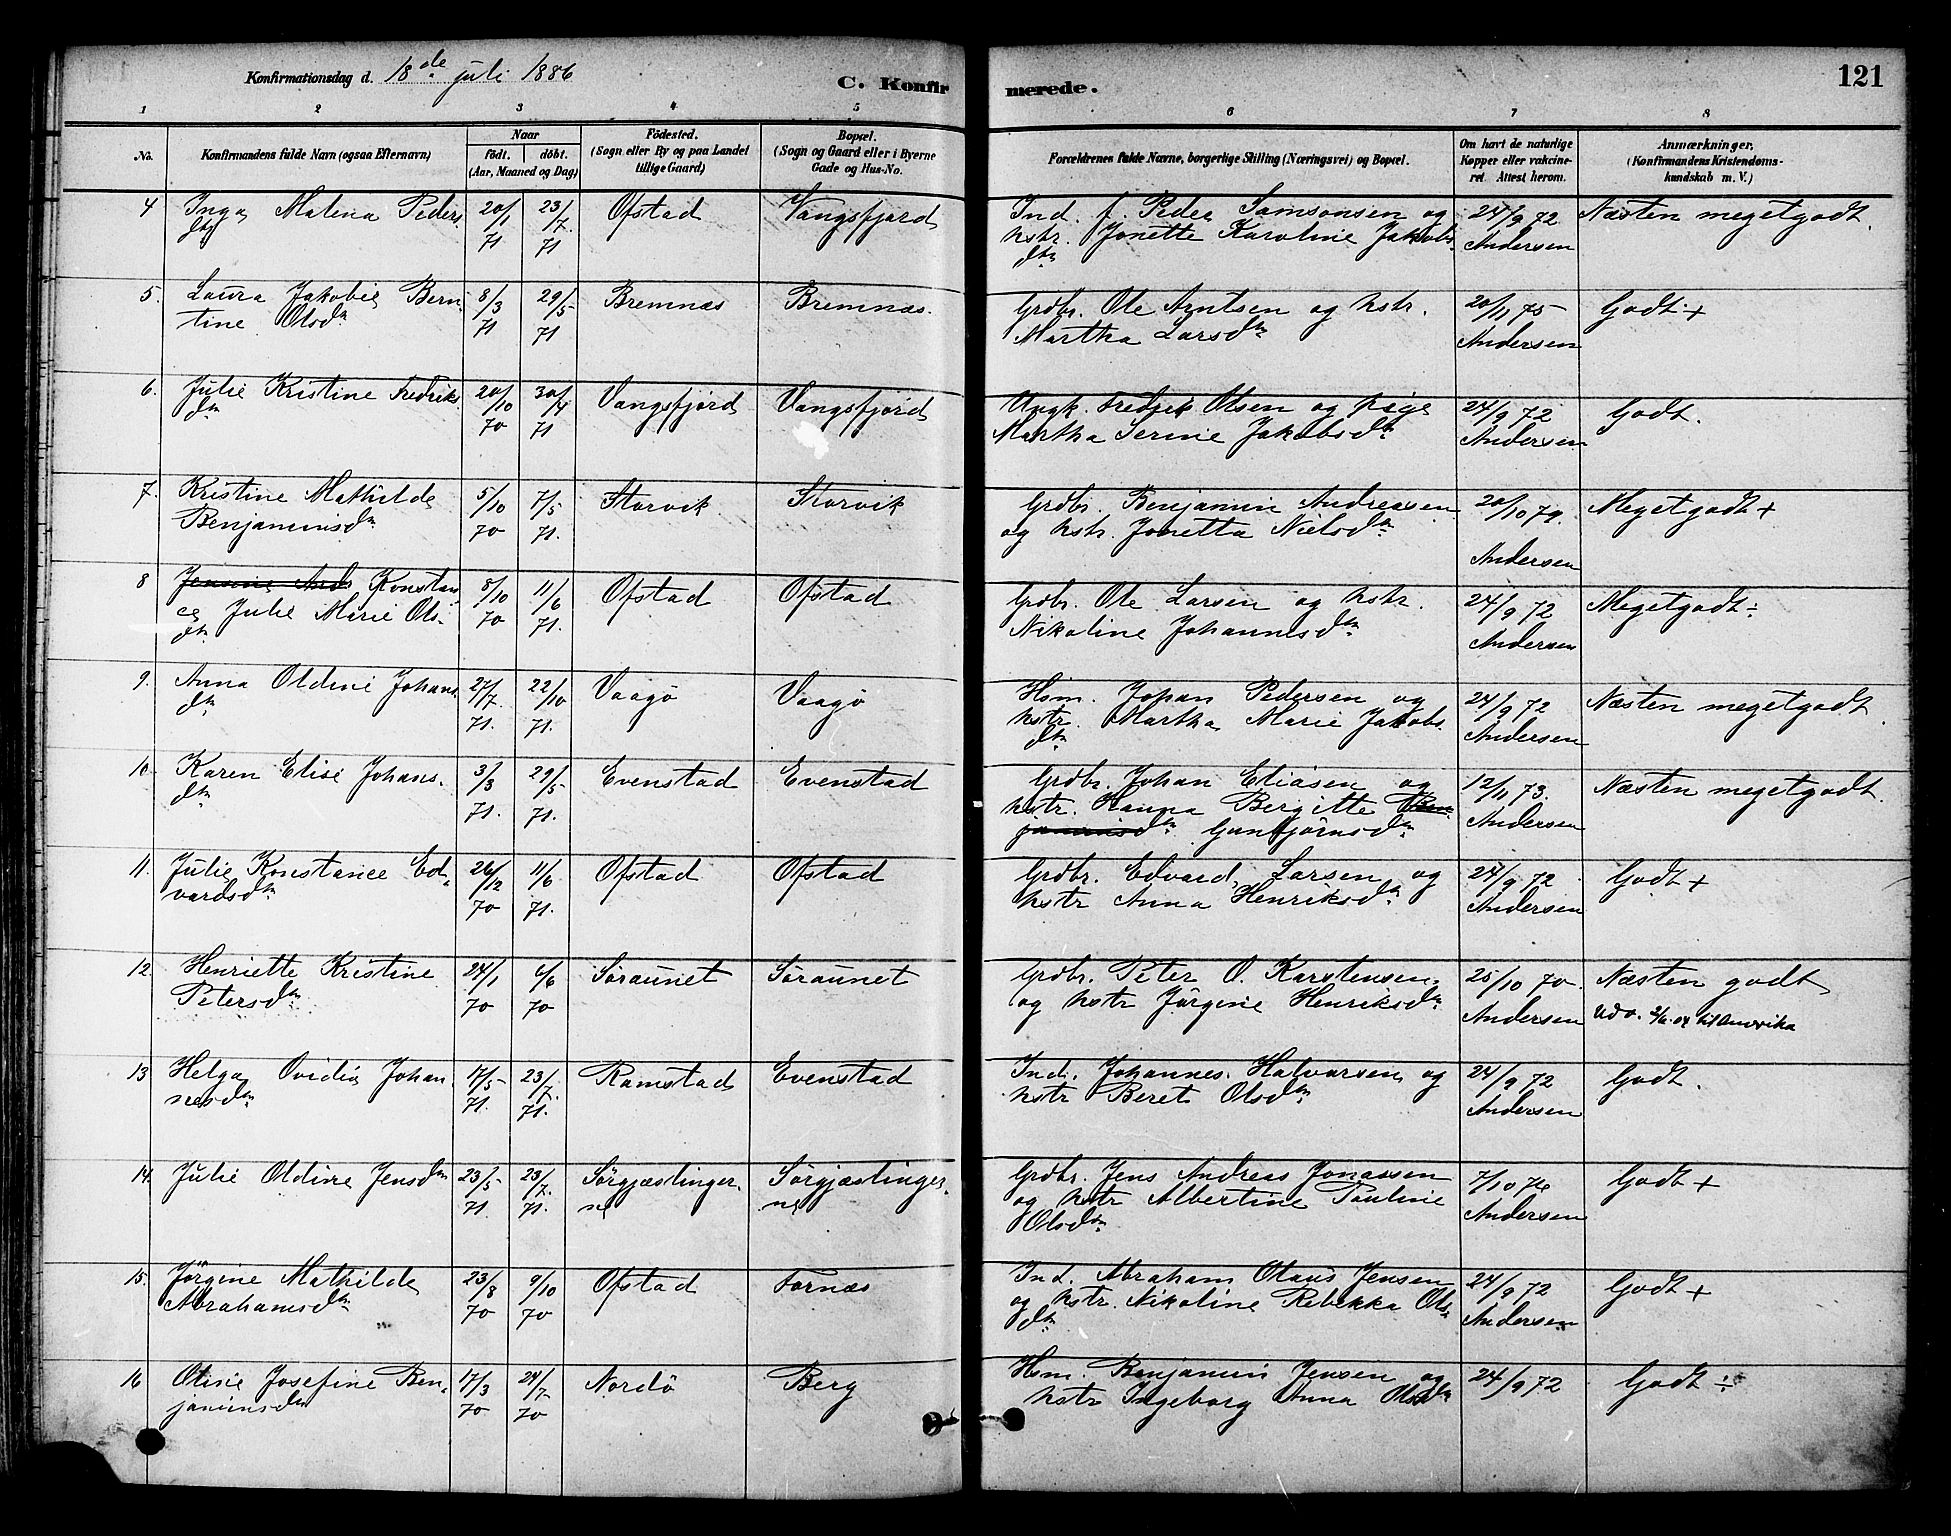 Konfirmationsdag d. 18de juli 1886
C. Konfirmerede.
121
1 2 3 4 5 6 7 8
No.
Konfirmandens fulde Navn (ogsaa Efternavn)
Naar
födt. döbt.
(Aar, Maaned og Dag)
Födested.
(Sogn eller By og paa Landet
tillige Gaard)
Bopæl.
(Sogn og Gaard eller i Byerne
Gade og Hus-No.
Forældrenes fulde Navne, borgerlige Stilling (Næringsvei) og Bopæl.
Om havt de naturlige
Kopper eller vakcine-
ret Attest herom.
Anmærkninger.
(Konfirmandens Kristendoms-
kundskab m. V.)
4 Inga Matena Peders 20/1 23/7 Ofstad Vangsfjord Ind. f. Peder Samsonsen og 24/9 72 Næsten megetgodt
dtr 71 71 hstr. Jonette Karoline Jakobs Andersen
dtr.
5. Laura Jakobie Bern 8/3 29/5 Bremnæs Bremnæs. Grdbr. Ole Arntsen og hstr. 20/11 75 Godt +
tine Olsdtr 71 71 Martha Larsdtr Andersen
6. Julie Kristine Fredriks 20/10 30/4 Vangsfjord Vangsfjord Ungk. Fredrik Olsen og pige 24/9 72 Godt.
dtr 70 71 Martha Serine Jakobsdtr Andersen
7. Kristine Mathilde 5/10 7/5 Storvik Storvik Grdbr. Benjamin Andreasen 20/10 79. Megetgodt +
Benjaminsdtr 70 71. og hstr. Jonetta Nielsdtr Andersen
8 Konstan 8/10 11/6 Ofstad Ofstad Grdbr. Ole Larsen og hstr. 24/9 72 Megetgodt ÷
ce Julie Marie Ols- 70 71. Nikoline Johannesdtr Andersen
dtr
9. Anna Oldine Johans 27/7. 22/10 Vaagö Vaagö Hsm. Johan Pedersen og 24/9 72 Næsten megetgodt.
dtr 71. 71. hstr. Martha Marie Jakobs Andersen
dtr
10. Karen Elise Johans. 3/3 29/5 Evenstad Evenstad Grdbr. Johan Eliasen og 12/11 73. Næsten megetgodt.
dtr 71. 71. hstr. Hanna Bergitte Ben Andersen
jaminsdtr. Gunbjörnsdtr
11. Julie Konstance Ed- 26/12 11/6 Ofstad Ofstad Grdbr. Edvard Larsen og 24/9 72 Godt +
vardsdtr 70 71. hstr Anna Henriksdtr Andersen
12. Henriette Kristine 24/1 6/6 Söraunet Söraunet Grdbr. Peter O. Karstensen 25/10 70. Næsten godt
Petersdtr 70 70 og hstr Jörgine Henriksdtr Andersen til Amerika
13 Helga Ovidia Johan 17/5 23/7. Ramstad Evenstad Ind. Johannes Halvorsen og 24/9 72 Godt.
nesdtr 71. 71. hstr Beret Olsdtr. Andersen
14. Julie Oldine Jensdtr 23/5 23/7. Sörgjæslinger- Sörgjæslinger- Grdbr. Jens Andreas Jonassen 7/10 76 Godt +
71. 71. ne ne og hstr Albertine Pauline Andersen
Olsdtr.
15. Jörgine Mathilde 23/8 9/10 Ofstad Fornæs Ind. Abraham Olaus Jensen 24/9 72 Godt +
Abrahamsdtr 70 70 og hstr. Nikoline Rebekka Ols Andersen
dtr
16 Otine Josefine Ben- 17/3 24/7 Nordö Berg Hsm. Benjamin Jensen og 24/9 72 Godt ÷
jaminsdtr 70 70 hstr Ingeborg Anna Olsdtr